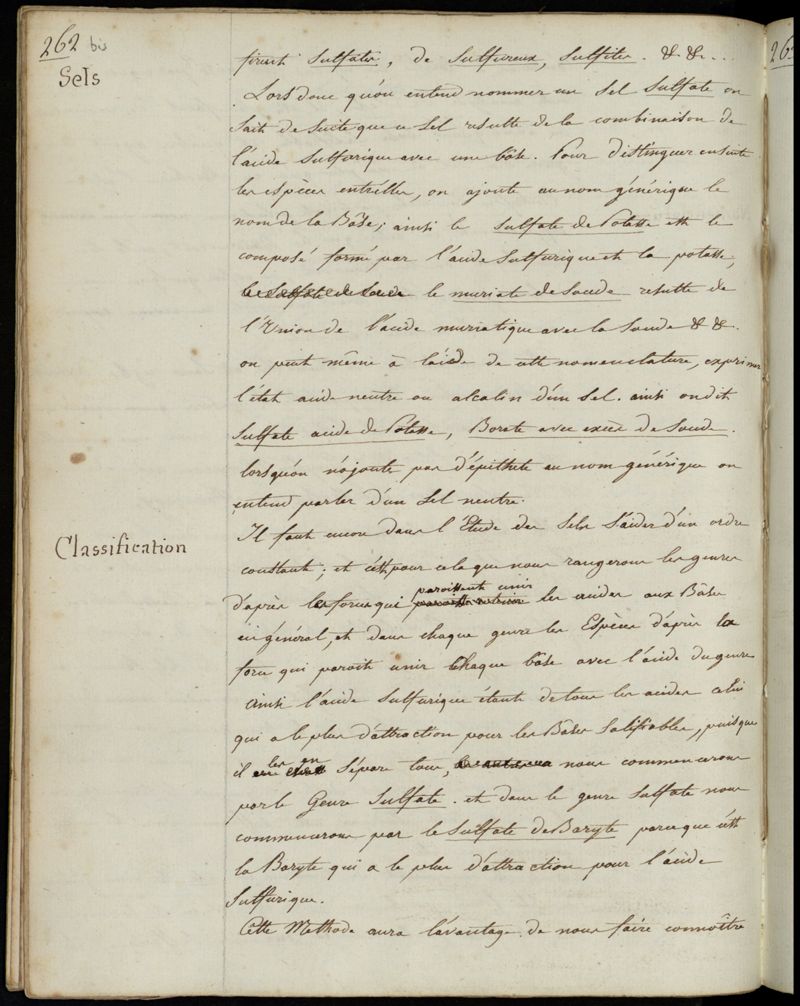 262 bis
Sels
firent Sulfates, de Sulfureux, Sulfites. &. &. ...
Lors donc qu'on entend nommer un Sel Sulfate on
Sait de Suite que ce Sel resulte de la combinaison de
l'acide Sulfurique avec une bâse. Pour distinguer ensuite
les espèces entr'elles, on ajoute au nom générique le
nom de la Bâse; ainsi le Sulfate de Potasse est le
composé formé par l'acide Sulfurique et la potasse,
le Sulfate de Soude le muriate de Soude resulte de
l'Union de l'acide muriatique avec la Soude & &.
on peut même à l'aide de cette nomenclature, exprimer
l'état acide neutre ou alcalin d'un Sel. ainsi on dit
Sulfate acide de Potasse, Borate avec excès de Soude.
lorsqu'on n'ajoute pas d'épithete au nom générique on
entend parler d'un Sel neutre.
Classification
Il faut encore dans l'Etude des Sels S'aider d'un ordre
constant; et c'est pour cela que nous rangerons les genres
paroissent unir
d'après les forces qui les acides aux Bâses
en général, et dans chaque genre les Espèces d'après la
force qui paroit unir Chaque bâse avec l'acide du genre
Ainsi l'acide Sulfurique étant de tous les acides celui
qui a le plus d'attraction pour les Bâses Salifiables, puisque
les en
il Sépare tous, les autres nous commencerons
par le Genre Sulfate. et dans le genre Sulfate nous
commencerons par le Sulfate de Baryte parceque c'est
la Baryte qui a le plus d'attraction pour l'acide
Sulfurique.
Cette Methode aura l'avantage de nous faire connoître
26